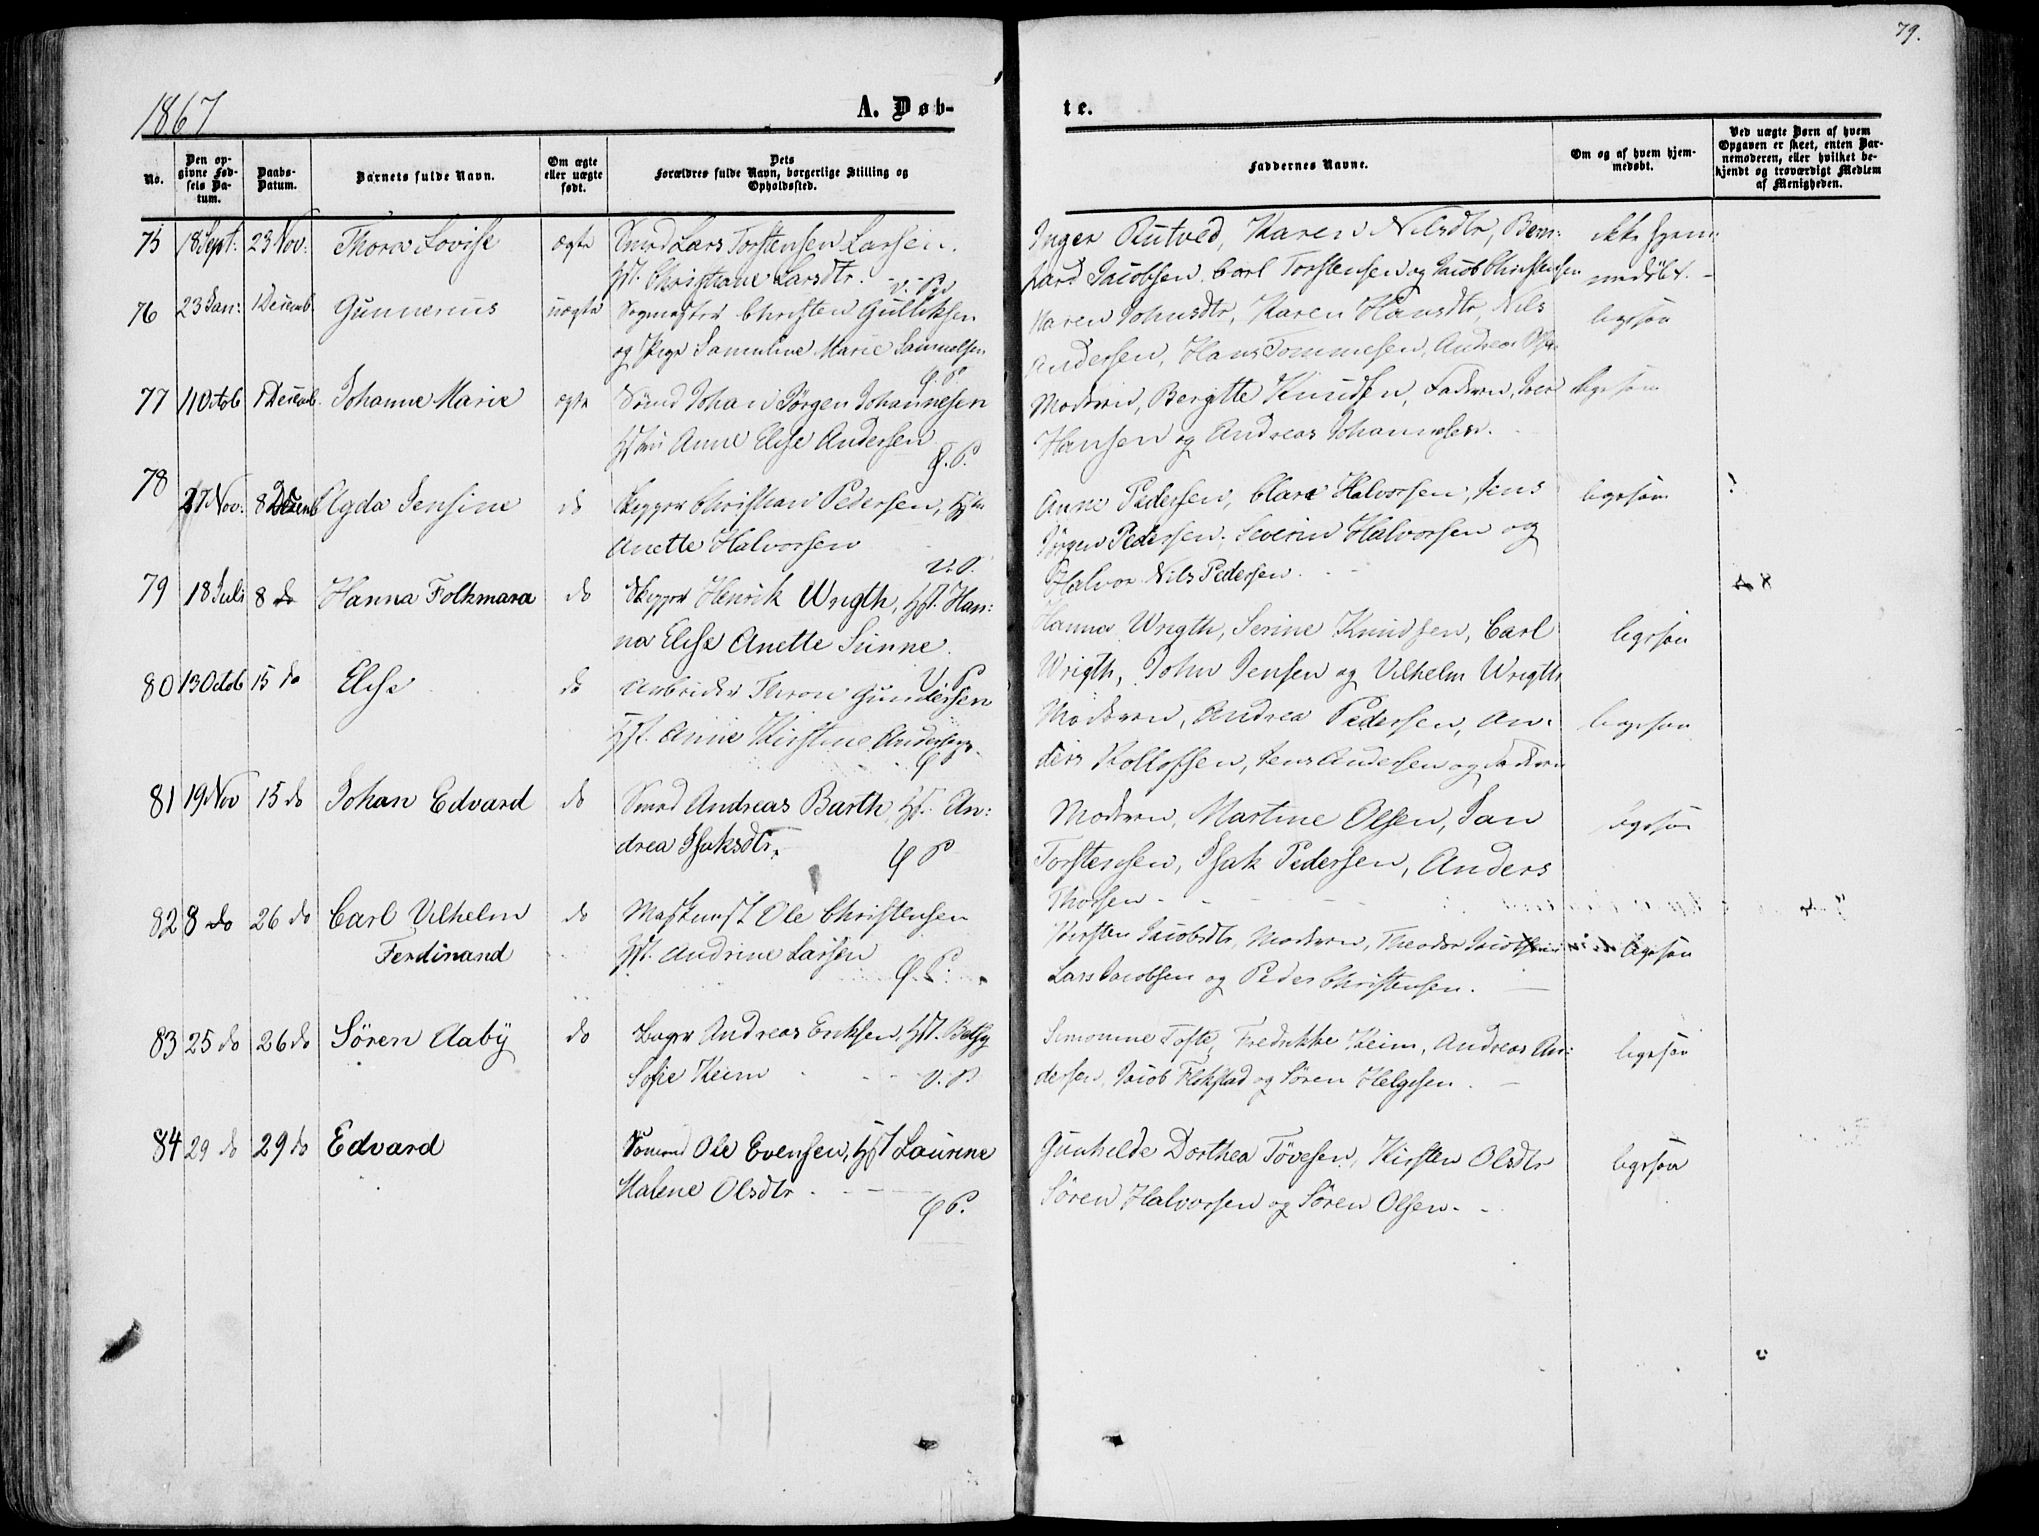 79.
1867
A. Døb-
te.
No.
Den op-
givne Fød-
sels Da-
tum.
Daabs-
Datum.
Barnets fulde Navn.
Om ægte
eller uægte
født.
Dets
Forældres fulde Navn, borgerlige Stilling og
Opholdssted.
Faddernes Navne.
Om og af hvem hjem-
medøbt.
Ved uægte Børn af hvem
Opgaven er skeet, enten Bar-
nemoderen, eller hvilket be-
kjendt og troværdigt Medlem
af Menigheden.
75 18 Sept: 23 Nov: Thora Lovise ægte Smed Lars Torstensen Larsen.
Hst. Christiane Larsdtr.
Inger Rutved, Karen Nilsdtr, Bern:
hard Jacobsen, Carl Torstensen og Jacob Christensen
ikke hjem:
medøbt.
76 23 Jan: 1 Decemb. Gunnerius uægte Christen Gulliksen
og Pige Samuline Marie Samuelsen
G. P
Karen Johnsdtr, Karen Hansdtr, Nils
Andersen, Hans Tommesen, Andreas
ligesaa
77 11 Octob 1 Decemb. Johanne Marie ægte Sømd Johan Jørgen Johannesen
Hstru Anne Elise Andersen
G. P.
Moderen, Bergitte Knudsen, Faderen, Iver
Hansen og Andreas Johannesen.
ligesaa
78 27 Nov: 8 Decemb Agda Jensine do Skipper Christian Pedersen, Hstr
Anette Halvorsen
V. P.
Anne Pedersen, Clara Halvorsen, Jens
Jørgen Pedersen, Severin Halvorsen og
Halvor Nils Pedersen.
ligesaa
79 18 Juli 8 do Hanna Folkmara do Skipper Henrik Wrigth, Hst. Han:
na Elise Anette Sunne.
V. P
Hanna Wrigth, Serine Knudsen, Carl
Wrigth, John Jensen og Vilhelm Wrigth
ligesaa
80 13 Octob 15 do Elise do Arbeider Thron Gundersen
Hst. Anne Kirstine Andersen.
G P
Moderen, Andrea Pedersen, An:
ders Rolloffsen, Jens Andersen og Faderen
ligesaa
81 19 Nov 15 do Johan Edvard do Smed Andreas Barth, Hst. An:
drea Isaksdtr.
G P
Moderen, Martine Olsen, Jan
Torstensen, Isak Pedersen, Anders
Thorsen
ligesaa
82 8 do 26 do Carl Vilhelm
Ferdinand
do Ole Christensen
Hst. Andrine Larsen
G. P.
Kirsten Jacobsdtr, Moderen, Theodor Jacobsen
Lars Jacobsen og Peder Christensen.
ligesaa
83 25 do 26 do Søren Aaby do Bager Andreas Eriksen, Hst. Betsy
Sofie Keim
V. P
Simonine Tofte, Fredrikke Keim, Andreas An:
dersen, Jacob Flekstad og Søren Helgesen.
ligesaa
84 29 do 29 do Edvard Sømand Ole Evensen, Hst Laurine
Malene Olsdtr.
G P.
Gunhilde Dorthea Tøvesen, Kirsten Olsdtr
Søren Halvorsen og Søren Olsen.
ligesaa